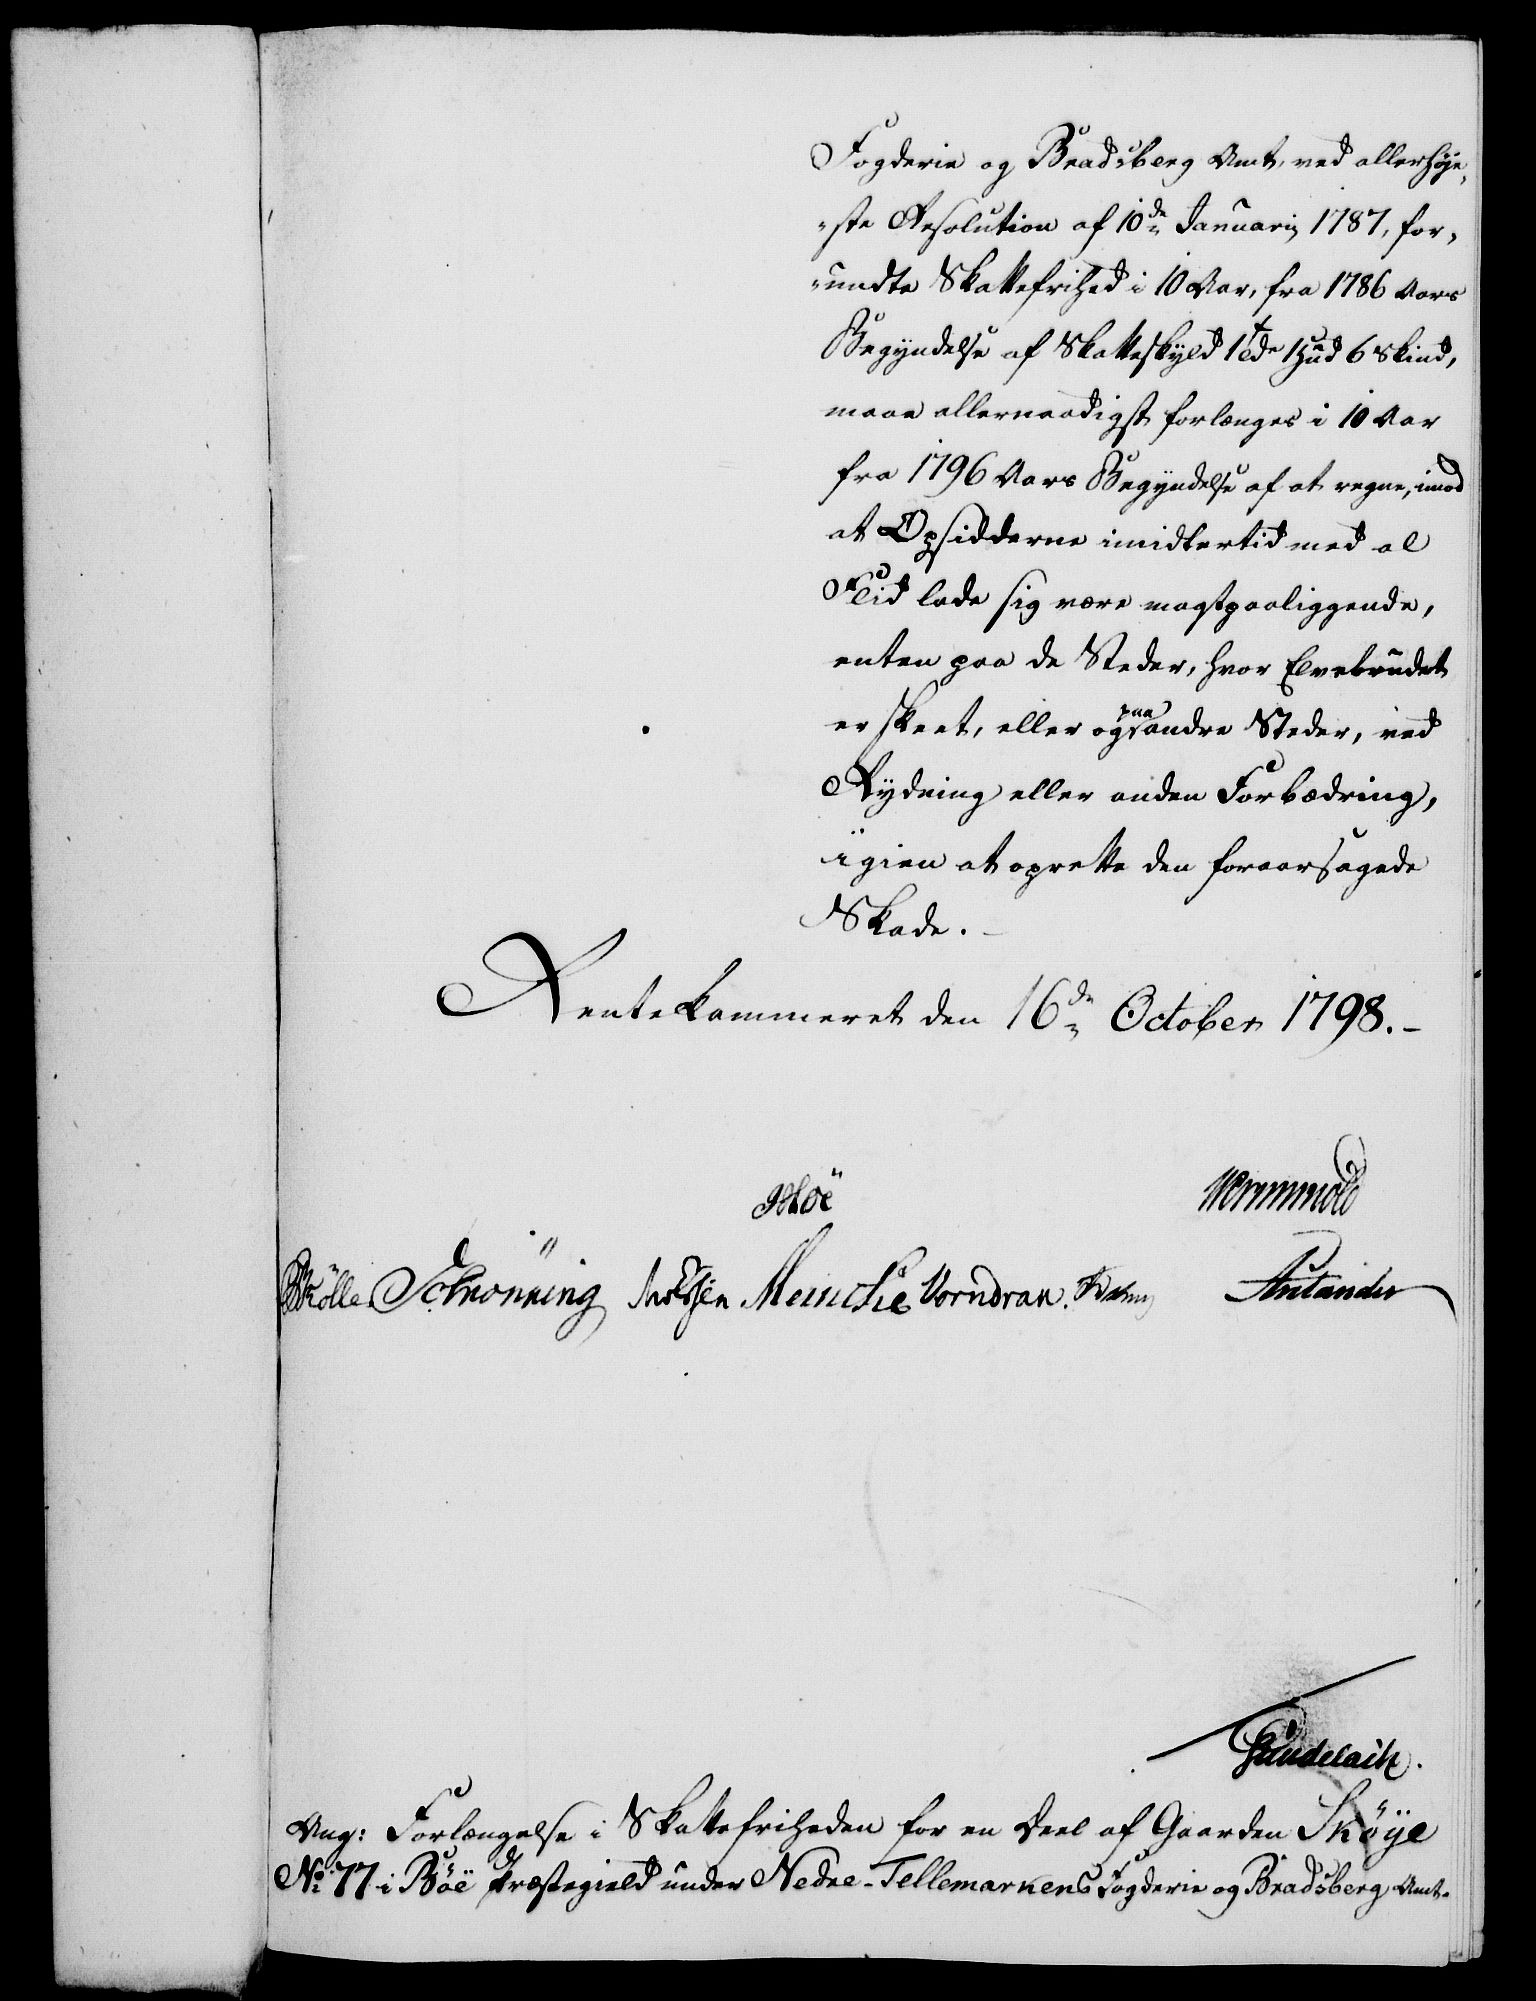 Fogderie og Bradsberg Amt, ved allerhöye-
-ste Resolution af 10de Januarii 1787, for-
-undte Skattefrihed i 10 Aar, fra 1786 Aars
Begyndelse af Skatteskyld 1 Hud 6 Skind,
maae allernaadigst forlænges i 10 Aar
fra 1796 Aars Begyndelse af at regne, imod
at Opsidderne imidlertid med al
Flid lade sig være magtpaaliggende,
enten paa de Steder, hvor Elvebrudet
er skeet, eller og paa andre Steder, ved
Rydning eller anden Forbædring,
igien at oprette den foraarsagede
Skade.-
Rentekammeret den 16de October 1798.-
Wormskiold
Schrönning Meincke Vorndran.
Gundelach.
Ang: Forlængelse i Skattefriheden for en Deel af Gaarden Sköye
No: 77 i Böe Præstegield under Nedre-Tellemarkens Fogderie og Bradsberg Amt.